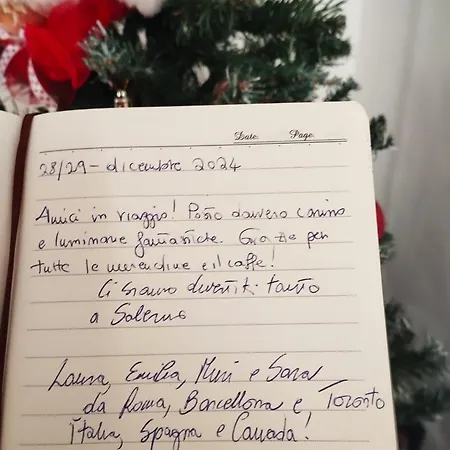 Date. Page.
28/29 - dicembre 2024
Amici in viaggio! Posto davvero carino
e luminarie fantastiche. Grazie per
tutte le merendine e il caffe!
Ci siamo divertiti tanto
a Salerno
Laura, Emilia, Miri e Sara
da Roma, Barcellona e Toronto
Italia, Spagna e Canada!